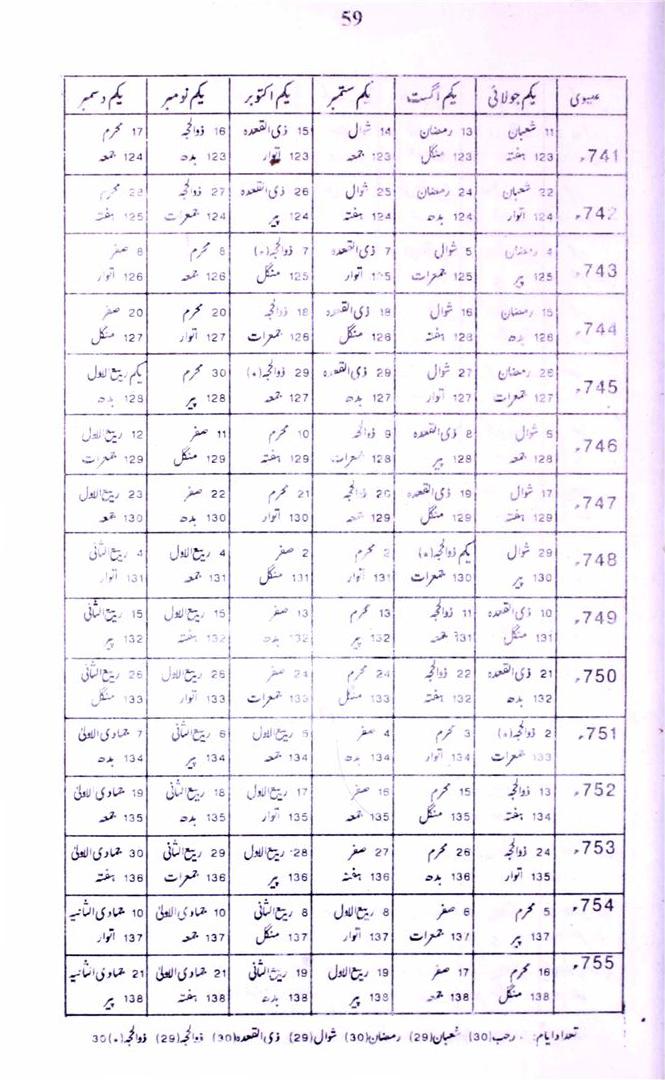 59
عیسوی یکم جولائی یکم اگست یکم ستمبر یکم اکتوبر یکم نومبر یکم دسمبر
11 شعبان 13 رمضان 14 شوال 15 ذی القعدہ 16 ذوالحجہ 17 محرم
741ء 123 ہفتہ 123 منگل 123 جمعہ 123 اتوار 123 بدھ 124 جمعہ
22 شعبان 24 رمضان 25 شوال 26 ذی القعدہ 27 ذوالحجہ محرم
742ء 124 اتوار 124 بدھ 124 ہفتہ 124 پیر 124 جمعرات 125 ہفتہ
4 رمضان 5 شوال 7 ذی القعدہ 7 ذوالحجہ(٭) 8 محرم 8 صفر
743ء 125 پیر 125 جمعرات 125 اتوار 125 منگل 126 جمعہ 126 اتوار
15 رمضان 16 شوال 18 ذی القعدہ 18 ذوالحجہ 20 محرم 20 صفر
744ء 126 بدھ 126 ہفتہ 126 منگل 126 جمعرات 127 اتوار 127 منگل
26 رمضان 27 شوال 29 ذی القعدہ 29 ذوالحجہ(٭) 30 محرم یکم ربیع الاول
745ء 127 جمعرات 127 اتوار 127 بدھ 127 جمعہ 128 پیر 128 بدھ
5 شوال 8 ذی القعدہ 9 ذوالحجہ 10 محرم 11 صفر 12 ربیع الاول
746ء 128 جمعہ 128 پیر 128 جمعرات 129 ہفتہ 129 منگل 129 جمعرات
17 شوال 19 ذی القعدہ 20 ذوالحجہ 21 محرم 22 صفر 23 ربیع الاول
747ء 129 ہفتہ 129 منگل 129 جمعہ 130 اتوار 130 بدھ 130 جمعہ
29 شوال یکم ذوالحجہ(٭) 2 محرم 2 صفر 4 ربیع الاول 4 ربیع الثانی
748ء 130 پیر 130 جمعرات 131 اتوار 131 منگل 131 جمعہ 131 اتوار
10 ذی القعدہ 11 ذوالحجہ 13 محرم 13 صفر 15 ربیع الاول 15 ربیع الثانی
749ء 131 منگل 131 جمعہ 132 پیر 132 بدھ 132 ہفتہ 132 پیر
21 ذی القعدہ 22 ذوالحجہ 24 محرم 24 صفر 26 ربیع الاول 26 ربیع الثانی
750ء 132 بدھ 132 ہفتہ 133 منگل 133 جمعرات 133 اتوار 133 منگل
2 ذوالحجہ(٭) 3 محرم 4 صفر 5 ربیع الاول 6 ربیع الثانی 7 جمادی الاولیٰ
751ء 133 جمعرات 134 اتوار 134 بدھ 134 جمعہ 134 پیر 134 بدھ
13 ذوالحجہ 15 محرم 16 صفر 17 ربیع الاول 18 ربیع الثانی 19 جمادی الاولیٰ
752ء 134 ہفتہ 135 منگل 135 جمعہ 135 اتوار 135 بدھ 135 جمعہ
24 ذوالحجہ 26 محرم 27 صفر 28 ربیع الاول 29 ربیع الثانی 30 جمادی الاولیٰ
753ء 135 اتوار 136 بدھ 136 ہفتہ 136 پیر 136 جمعرات 136 ہفتہ
5 محرم 6 صفر 8 ربیع الاول 8 ربیع الثانی 10 جمادی الاولیٰ 10 جمادی الثانیہ
754ء 137 پیر 137 جمعرات 137 اتوار 137 منگل 137 جمعہ 137 اتوار
16 محرم 17 صفر 19 ربیع الاول 19 ربیع الثانی 21 جمادی الاولیٰ 21 جمادی الثانیہ
755ء 138 منگل 138 جمعہ 138 پیر 138 بدھ 138 ہفتہ 138 پیر
تعداد ایام: رجب(30) شعبان(29) رمضان(30) شوال(29) ذی القعدہ(30) ذوالحجہ(29) ذوالحجہ(٭)30